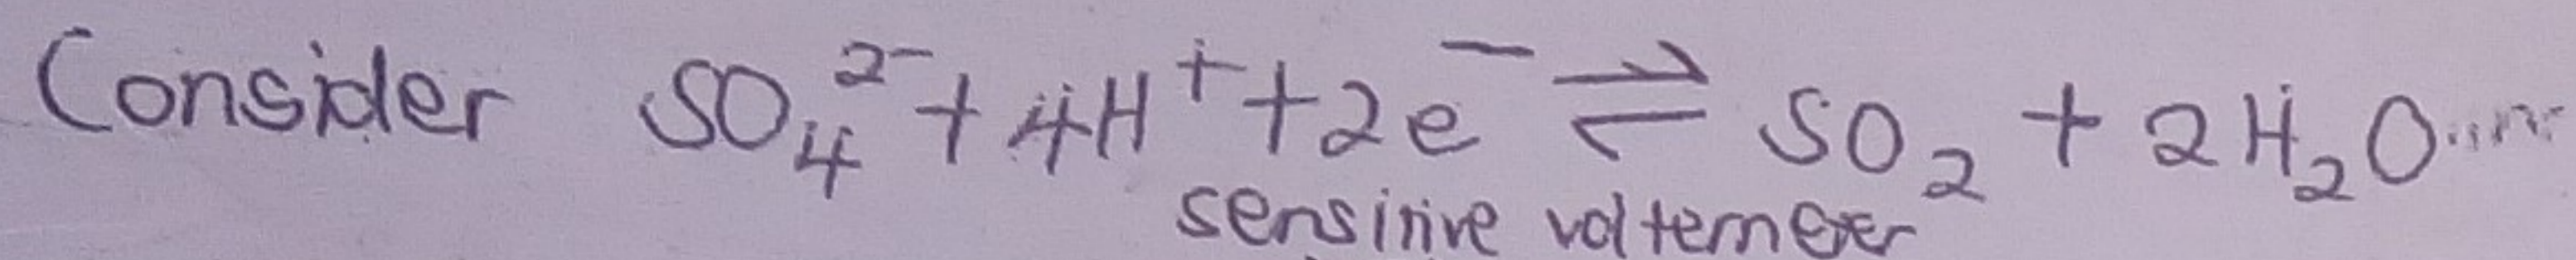 Consider SO₄²⁻ + 4H⁺ + 2e⁻ ⇌ SO₂ + 2H₂O
sensitive voltemeter